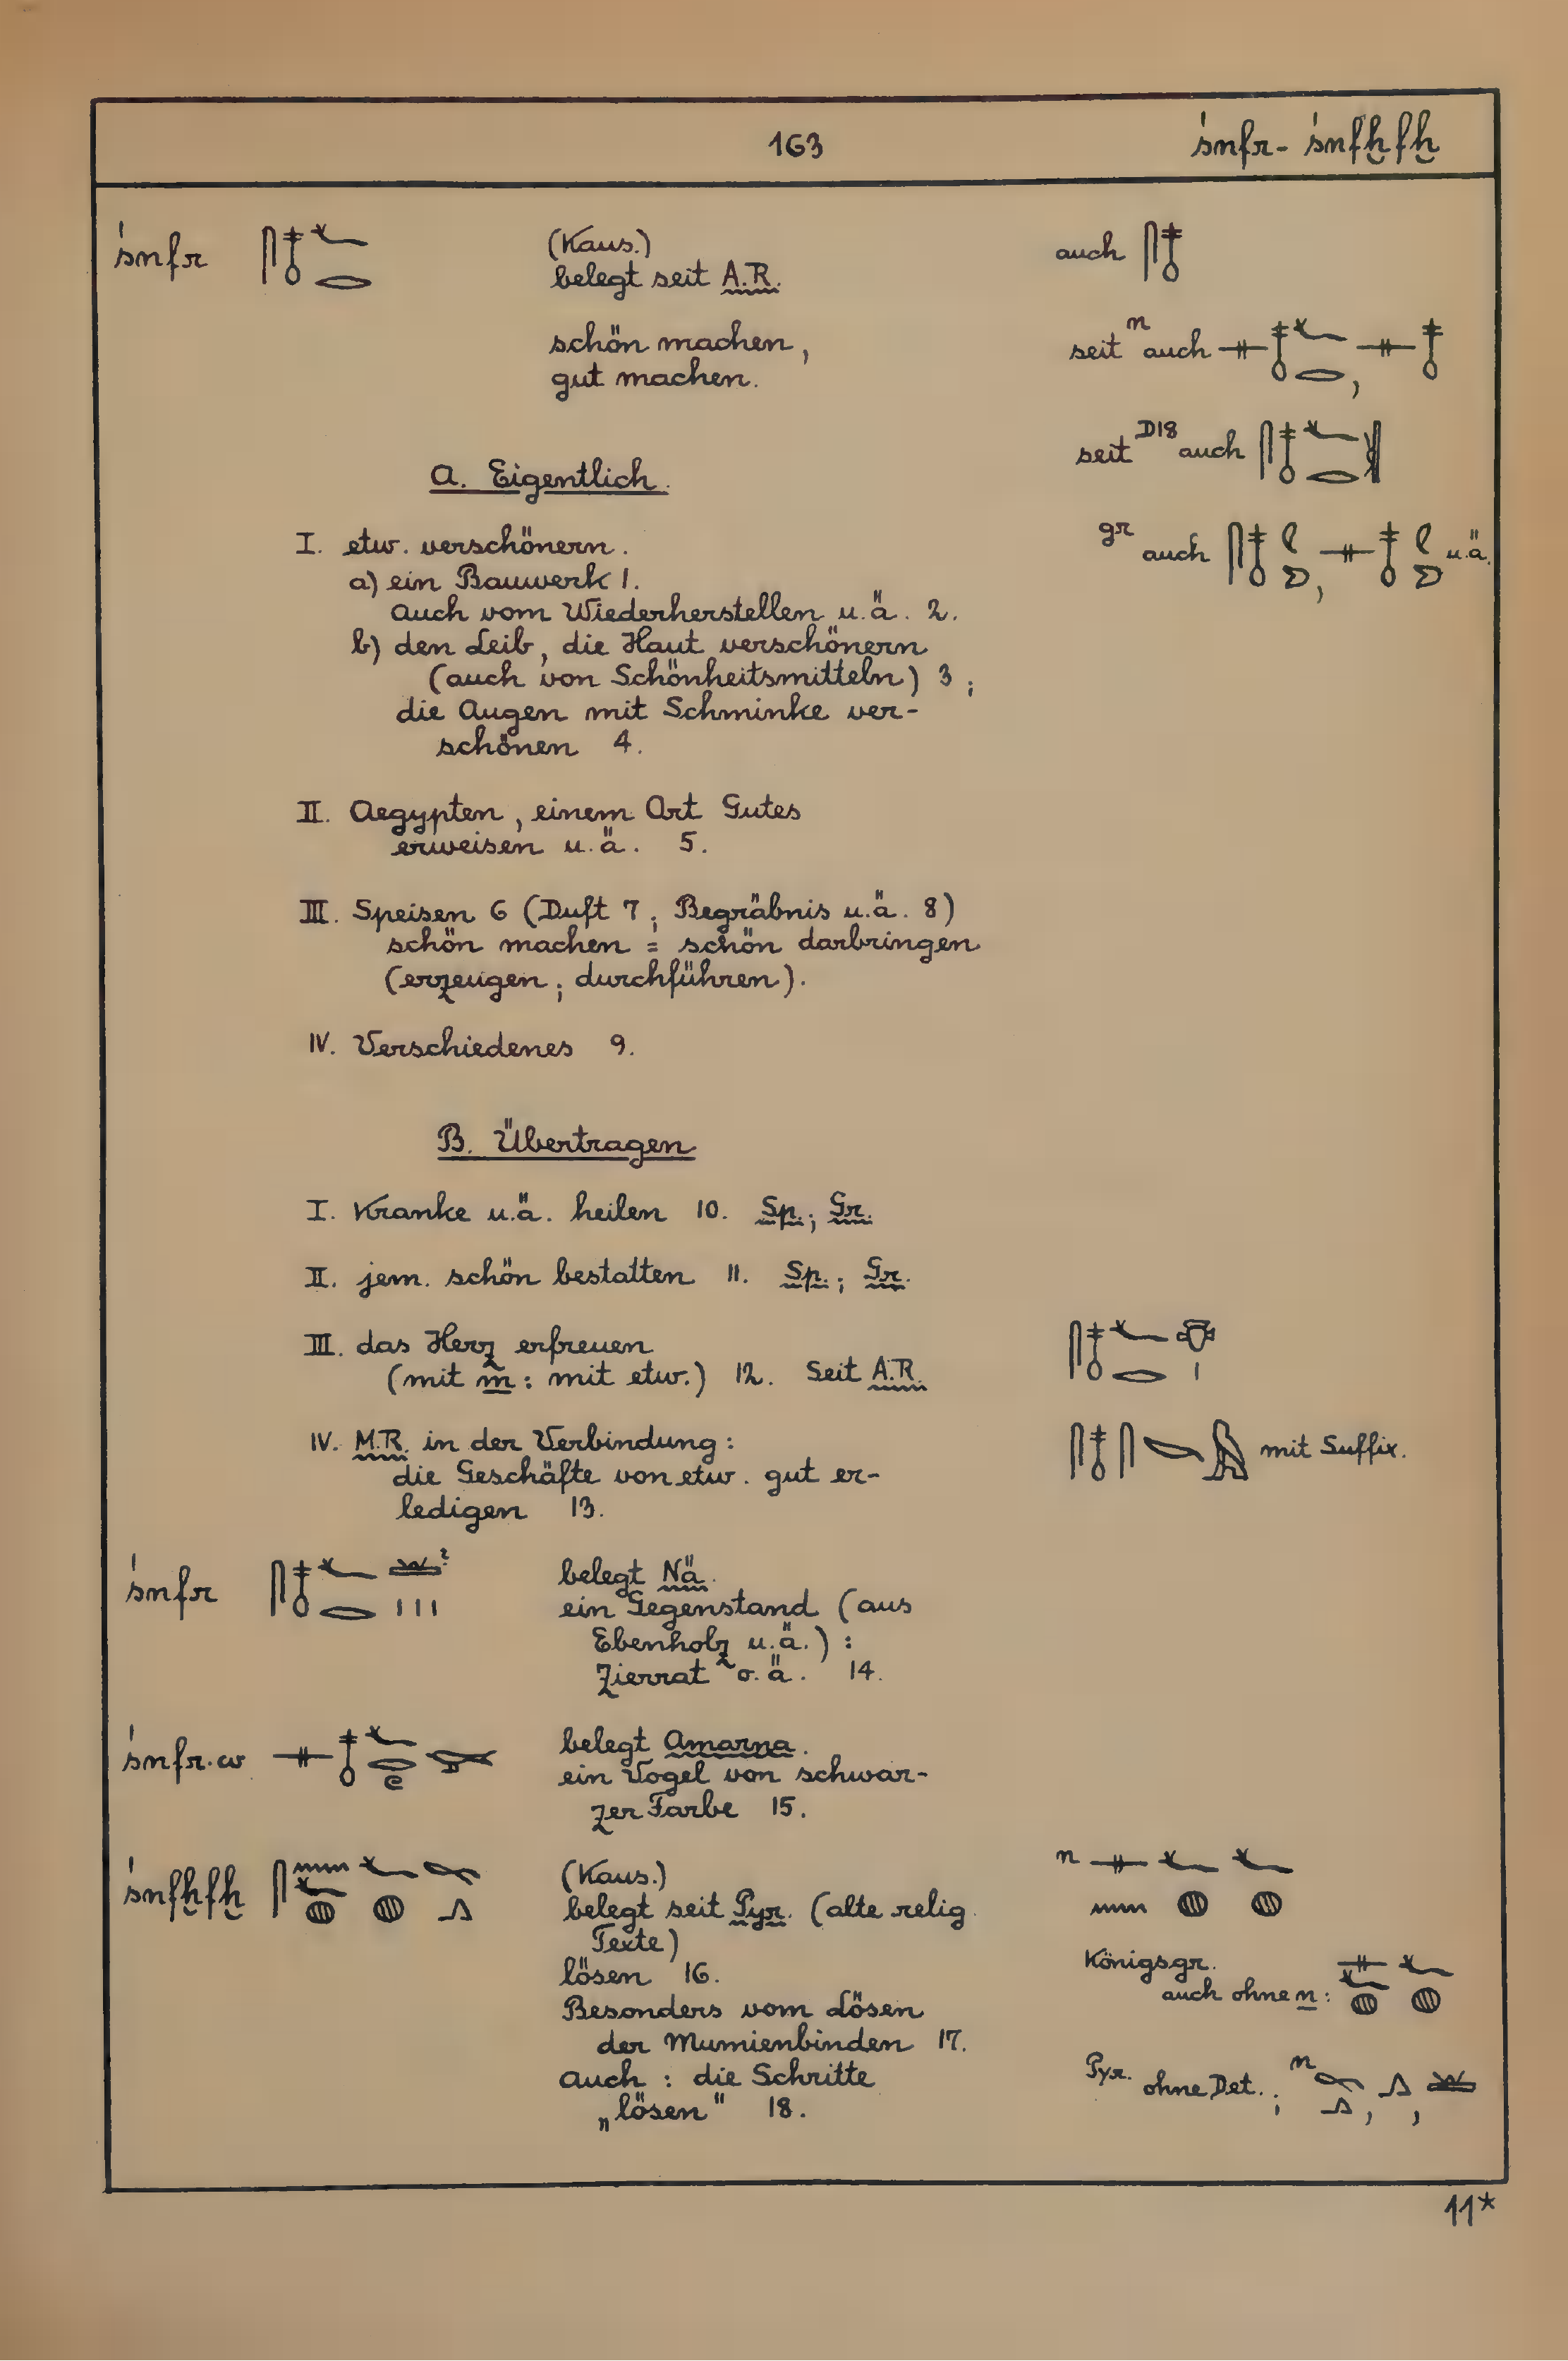 163
śnfr - śnfḫfḫ
śnfr
(Kaus.)
belegt seit A.R.
schön machen,
gut machen.
auch
seit n auch
seit D18 auch
gr auch u.ä.
A. Eigentlich.
I. etw. verschönern.
a) ein Bauwerk 1.
auch vom Wiederherstellen u.ä. 2.
b) den Leib, die Haut verschönern
(auch von Schönheitsmitteln) 3;
die Augen mit Schminke ver-
schönen 4.
II. Aegypten, einem Ort Gutes
erweisen u.ä. 5.
III. Speisen 6 (Duft 7; Begräbnis u.ä. 8)
schön machen = schön darbringen
(erzeugen; durchführen).
IV. Verschiedenes 9.
B. Übertragen
I. Kranke u.ä. heilen 10. Sp.; Gr.
II. jem. schön bestatten 11. Sp.; Gr.
III. das Herz erfreuen
(mit m: mit etw.) 12. Seit A.R.
IV. M.R. in der Verbindung:
die Geschäfte von etw. gut er-
ledigen 13.
mit Suffix.
śnfr
belegt Nä.
ein Gegenstand (aus
Ebenholz u.ä.):
Zierrat o.ä. 14.
śnfr.w
belegt Amarna.
ein Vogel von schwar-
zer Farbe 15.
śnfḫfḫ
(Kaus.)
belegt seit Pyr. (alte relig.
Texte)
lösen 16.
Besonders vom Lösen
der Mumienbinden 17.
auch: die Schritte
„lösen" 18.
n
Königsgr.
auch ohne n:
Pyr. ohne Det.; n
11*